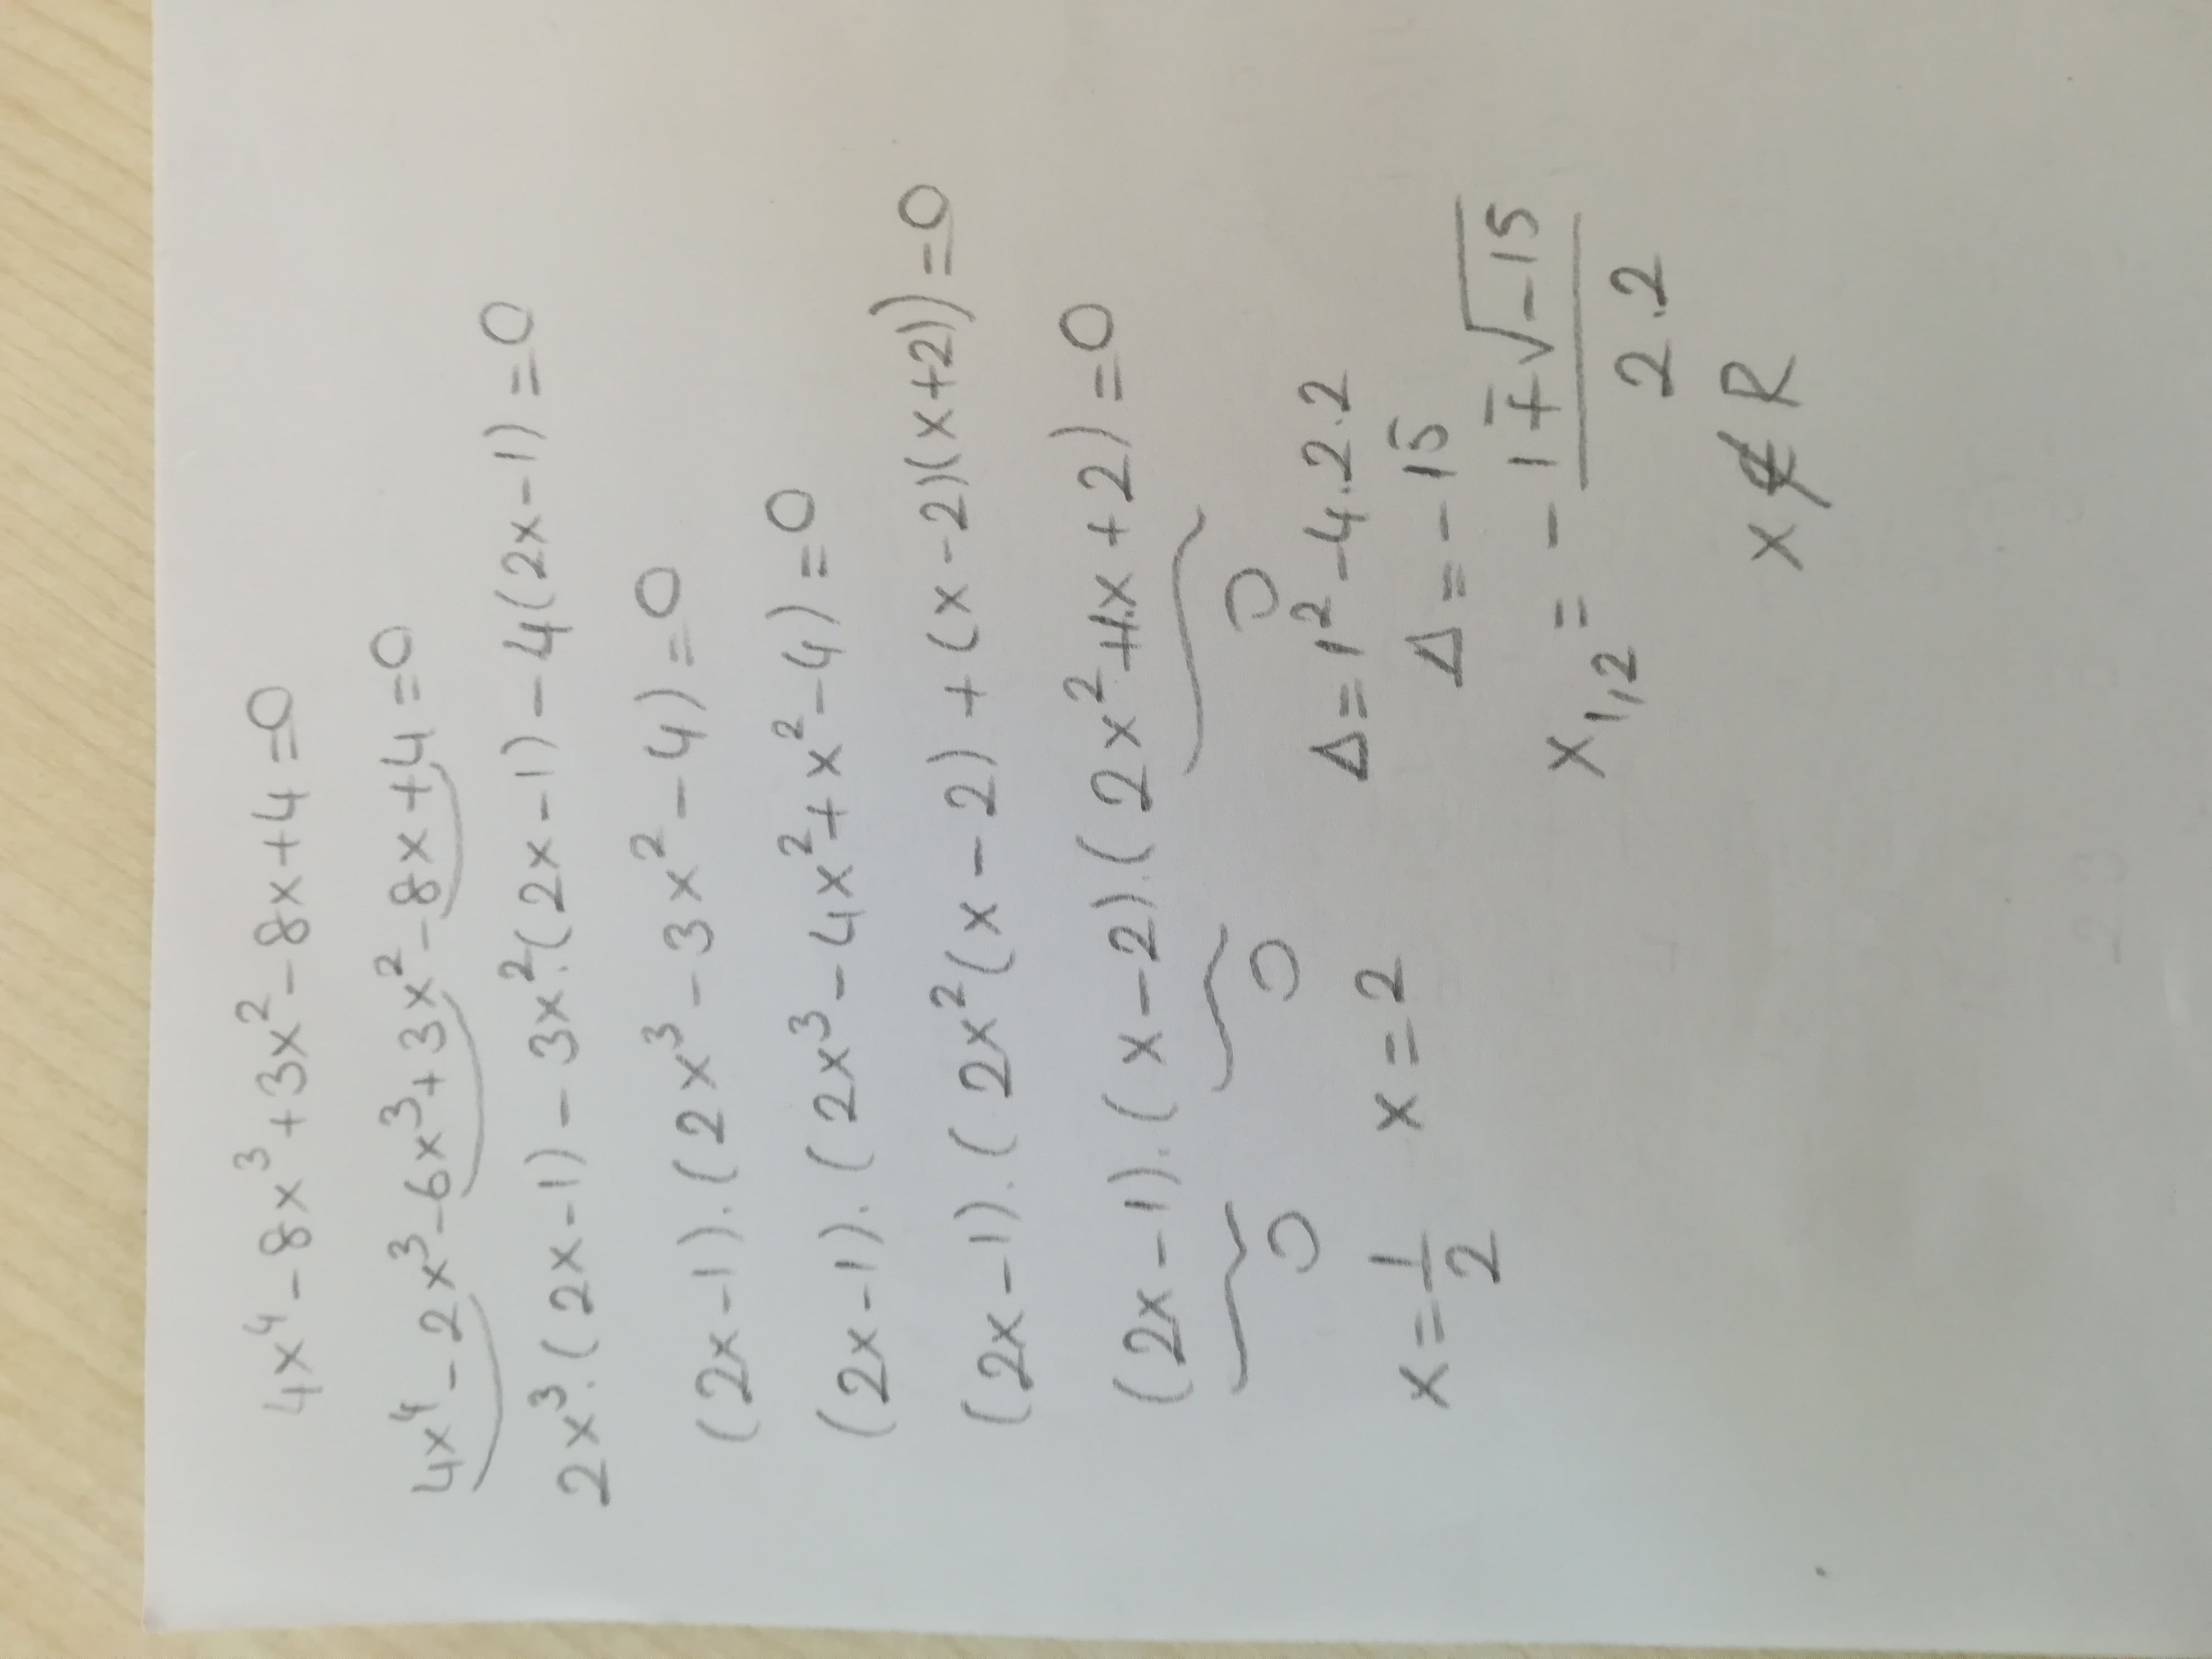 4x⁴-8x³+3x²-8x+4=0
4x⁴-2x³-6x³+3x²-8x+4=0
2x³.(2x-1)-3x².(2x-1)-4(2x-1)=0
(2x-1).(2x³-3x²-4)=0
(2x-1).(2x³-4x²+x²-4)=0
(2x-1).(2x²(x-2)+(x-2)(x+2))=0
(2x-1).(x-2).(2x²+1.x+2)=0
0 0 0
x=1/2 x=2 Δ=1²-4.2.2
Δ=-15
x₁,₂=-1∓√-15/2.2
x∉R